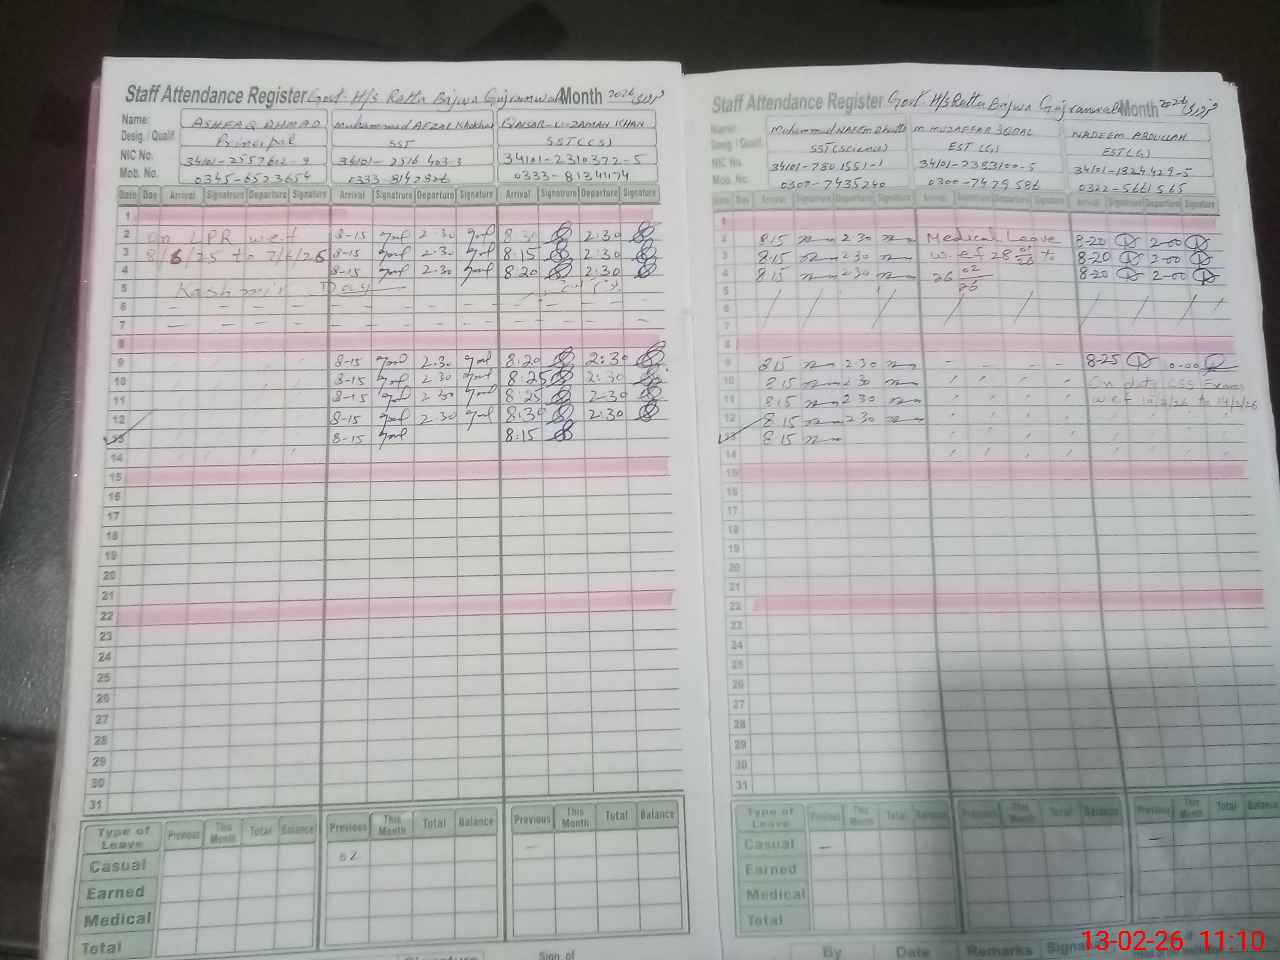 Staff Attendance Register Govt H/s Ratta Bajwa Gujranwala Month فروری 2026
Name: ASHFAQ AHMAD Muhammad AFZAL Khokhar QAISAR-U-ZAMAN KHAN
Desig. / Qualif. Principal SST SST(CS)
NIC No. 34101-2557602-9 34101-2516403-3 34101-2310372-5
Mob. No. 0345-6523654 0333-8147826 0333-8134474
Date Day Arrival Signature Departure Signature Arrival Signature Departure Signature Arrival Signature Departure Signature
1
2 on LPR w.e.f 8-15 2-30 8 30 2:30
3 8/6/25 to 7/6/26 8-15 2-30 8:15 2:30
4 8-15 2-30 8:20 2:30
5 Kashmir Day
6 - - - - - - - - - - -
7 - - - - - - - - - - - -
8
9 8-15 2-30 8:20 2:30
10 8-15 2 30 8:25 2:30
11 8-15 2 30 8:25 2:30
12 8-15 2-30 8:30 2:30
13 8-15 8:15
14
15
16
17
18
19
20
21
22
23
24
25
26
27
28
29
30
31
Type of Leave Previous This Month Total Balance Previous This Month Total Balance Previous This Month Total Balance
Casual 02 -
Earned
Medical
Total
Signature Sign. of
Staff Attendance Register Govt H/s Ratta Bajwa Gujranwala Month فروری 2026
Name: Muhammad NAEEM Bhatti M MUZAFFAR IQBAL NADEEM ABDULLAH
Desig. / Qualif. SST(Science) EST (G) EST(G)
NIC No. 34101-7801551-1 34101-2383100-5 34101-1824429-5
Mob. No. 0307-7435240 0300-7479586 0322-5661565
Date Day Arrival Signature Departure Signature Arrival Signature Departure Signature Arrival Signature Departure Signature
1
2 8 15 2 30 Medical Leave 8-20 2-00
3 8.15 2-30 w.e.f 28 01/26 to 8-20 2-00
4 8 15 2-30 26 02/26 8-20 2-00
5
6
7
8
9 8 15 2-30 - - - 8-25
10 8 15 2 30 On duty CSS Exams
11 8 15 2 30 w.e.f 10/2/26 to 14/2/26
12 8 15 2 30
13 8 15
14
15
16
17
18
19
20
21
22
23
24
25
26
27
28
29
30
31
Type of Leave Previous This Month Total Balance Previous This Month Total Balance Previous This Month Total Balance
Casual - -
Earned
Medical
Total
By Date Remarks
13-02-26 11:10